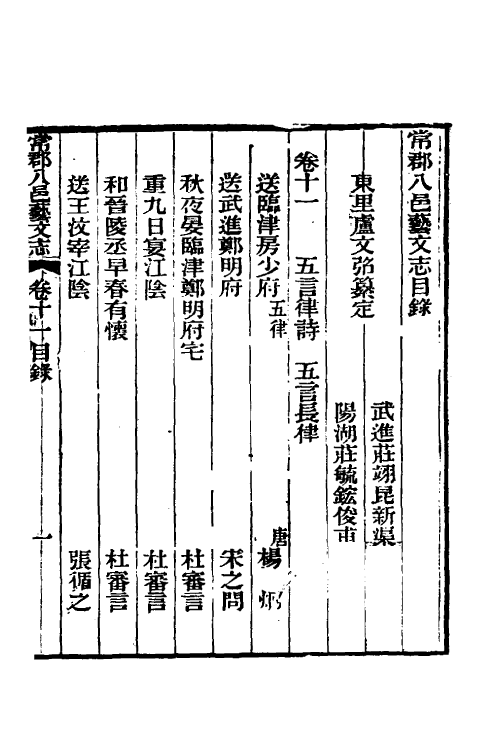 常郡八邑藝文志目錄
武進莊翊昆新渠
東里盧文弨纂定
陽湖莊毓鋐俊甫
卷十一 五言律詩 五言長律
送臨津房少府五律 唐楊炯
送武進鄭明府 宋之問
秋夜晏臨津鄭明府宅 杜審言
重九日宴江陰 杜審言
和晉陵丞早春有懷 杜審言
送王汶宰江陰 張循之
常郡八邑藝文志 卷十一目錄 一